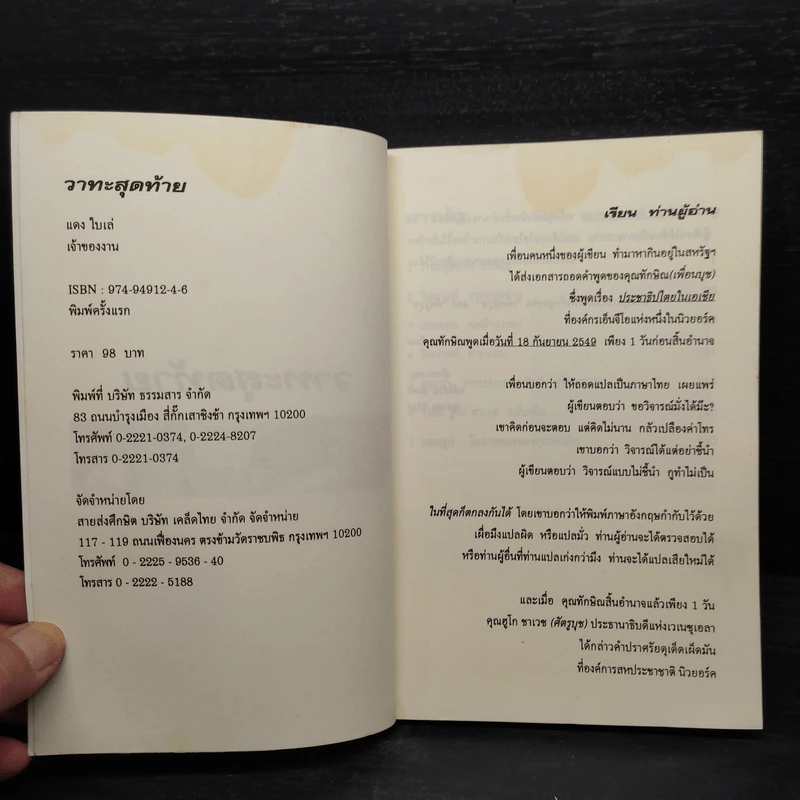 วาทะสุดท้าย
แดง ใบเล่
เจ้าของงาน
ISBN : 974-94912-4-6
พิมพ์ครั้งแรก
ราคา 98 บาท
พิมพ์ที่ บริษัท ธรรมสาร จำกัด
83 ถนนบำรุงเมือง สี่กั๊กเสาชิงช้า กรุงเทพฯ 10200
โทรศัพท์ 0-2221-0374, 0-2224-8207
โทรสาร 0-2221-0374
จัดจำหน่ายโดย
สายส่งศึกษิต บริษัท เคล็ดไทย จำกัด จัดจำหน่าย
117 - 119 ถนนเฟื่องนคร ตรงข้ามวัดราชบพิธ กรุงเทพฯ 10200
โทรศัพท์ 0 - 2225 - 9536 - 40
โทรสาร 0 - 2222 - 5188
เรียน ท่านผู้อ่าน
เพื่อนคนหนึ่งของผู้เขียน ทำมาหากินอยู่ในสหรัฐฯ
ได้ส่งเอกสารถอดคำพูดของคุณทักษิณ(เพื่อนบุช)
ซึ่งพูดเรื่อง ประชาธิปไตยในเอเชีย
ที่องค์กรเอ็นจีโอแห่งหนึ่งในนิวยอร์ค
คุณทักษิณพูดเมื่อวันที่ 18 กันยายน 2549 เพียง 1 วันก่อนสิ้นอำนาจ
เพื่อนบอกว่า ให้ถอดแปลเป็นภาษาไทย เผยแพร่
ผู้เขียนตอบว่า ขอวิจารณ์มั่งได้มั๊ะ?
เขาคิดก่อนจะตอบ แต่คิดไม่นาน กลัวเปลืองค่าโทร
เขาบอกว่า วิจารณ์ได้แต่อย่าชี้นำ
ผู้เขียนตอบว่า วิจารณ์แบบไม่ชี้นำ กูทำไม่เป็น
ในที่สุดก็ตกลงกันได้ โดยเขาบอกว่าให้พิมพ์ภาษาอังกฤษกำกับไว้ด้วย
เผื่อมึงแปลผิด หรือแปลมั่ว ท่านผู้อ่านจะได้ตรวจสอบได้
หรือท่านผู้อื่นที่ท่านแปลเก่งกว่ามึง ท่านจะได้แปลเสียใหม่ได้
และเมื่อ คุณทักษิณสิ้นอำนาจแล้วเพียง 1 วัน
คุณฮูโก ชาเวซ (ศัตรูบุช) ประธานาธิบดีแห่งเวเนซุเอลา
ได้กล่าวคำปราศรัยดุเด็ดเผ็ดมัน
ที่องค์การสหประชาชาติ นิวยอร์ค